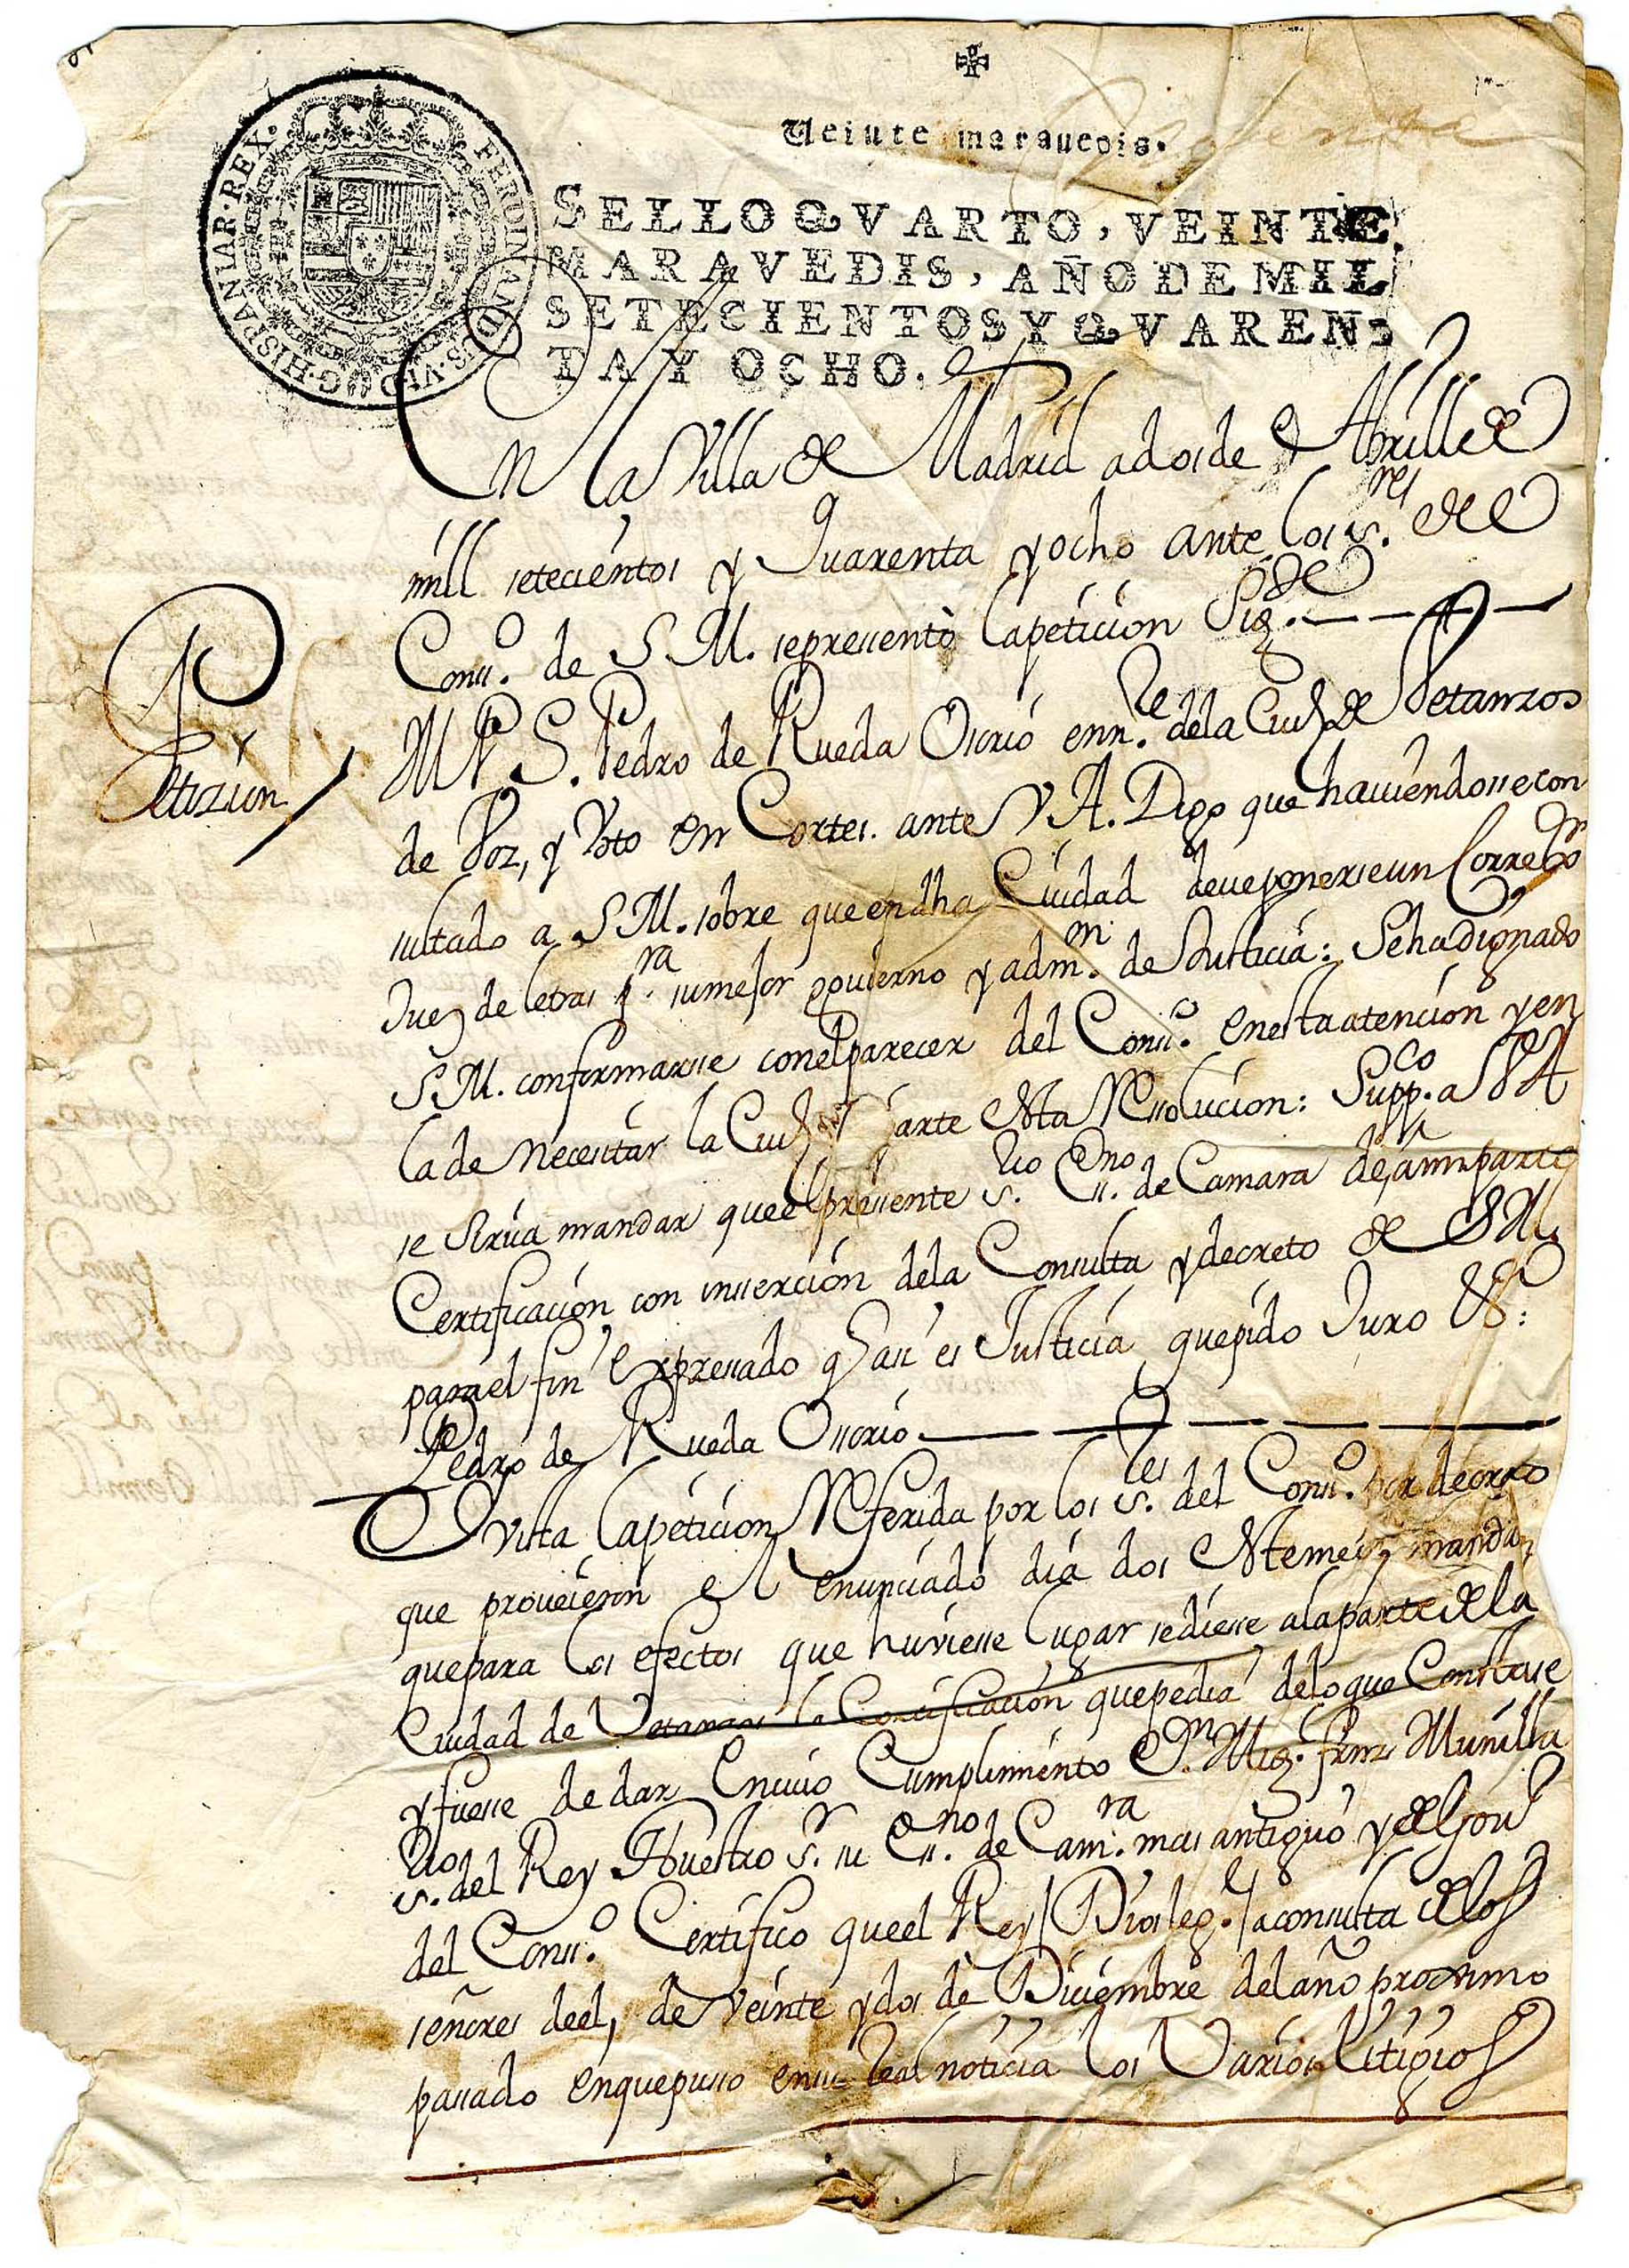 Veinte marauedis.
FERDINANDUS.VI.D.G.HISPANIAR.REX.
SELLO QVARTO, VEINTE
MARAVEDIS, AÑO DE MIL
SETECIENTOS Y QVAREN-
TA Y OCHO.
En la Villa de Madrid a dos de Abrill de
mill setecientos y Quarenta y ocho ante los s.res del
Cons.o de S. M. se presentò la peticion Sig.de
Petizion
M P S. Pedro de Rueda Osorio en n.e de la Ciud de Vetanzos
de Voz, y Voto en Cortes. ante V A. Digo que haviendosse con
sultado a S. M. sobre que en dha Ciudad deue ponerse un Correxor
Juez de letras p.ra su mejor govierno y adm.on de Justicia: Se ha dignado
S. M. conformarse con el parecer del Cons.o en esta atencion y en
la de necesitar la Ciud parte esta Resolucion: Supp.co a V A
se sirva mandar que el presente s.rio Ess.no de Camara de, a mi parte
Certificacion con inserzion de la Consulta y decreto de S M
para el fin expresado q asi es Justicia que pido Juro &:
Pedro de Rueda Ossorio
Y vista la peticion Referida por los s.res del Cons.o por decreto
que proveieron el enunciado dia dos este mes, mandan
que para los efectos que huviese lugar se diese a la parte de la
Ciudad de Vetanzos la Certificacion que pedia de lo que Constase
y fuese de dar En cuio Cumplimiento D.n Mig. Frnz Munilla
s.rio del Rey Nuestro S.r su Ess.no de Cam.ra mas antiguo y del Gov.no
del Cons.o Certifico que el Rey / Dios le g.e / a consulta de los
señores de el, de Veinte y dos de Diciembre del año proximo
pasado en que puso en su Real noticia los Varios Litigios